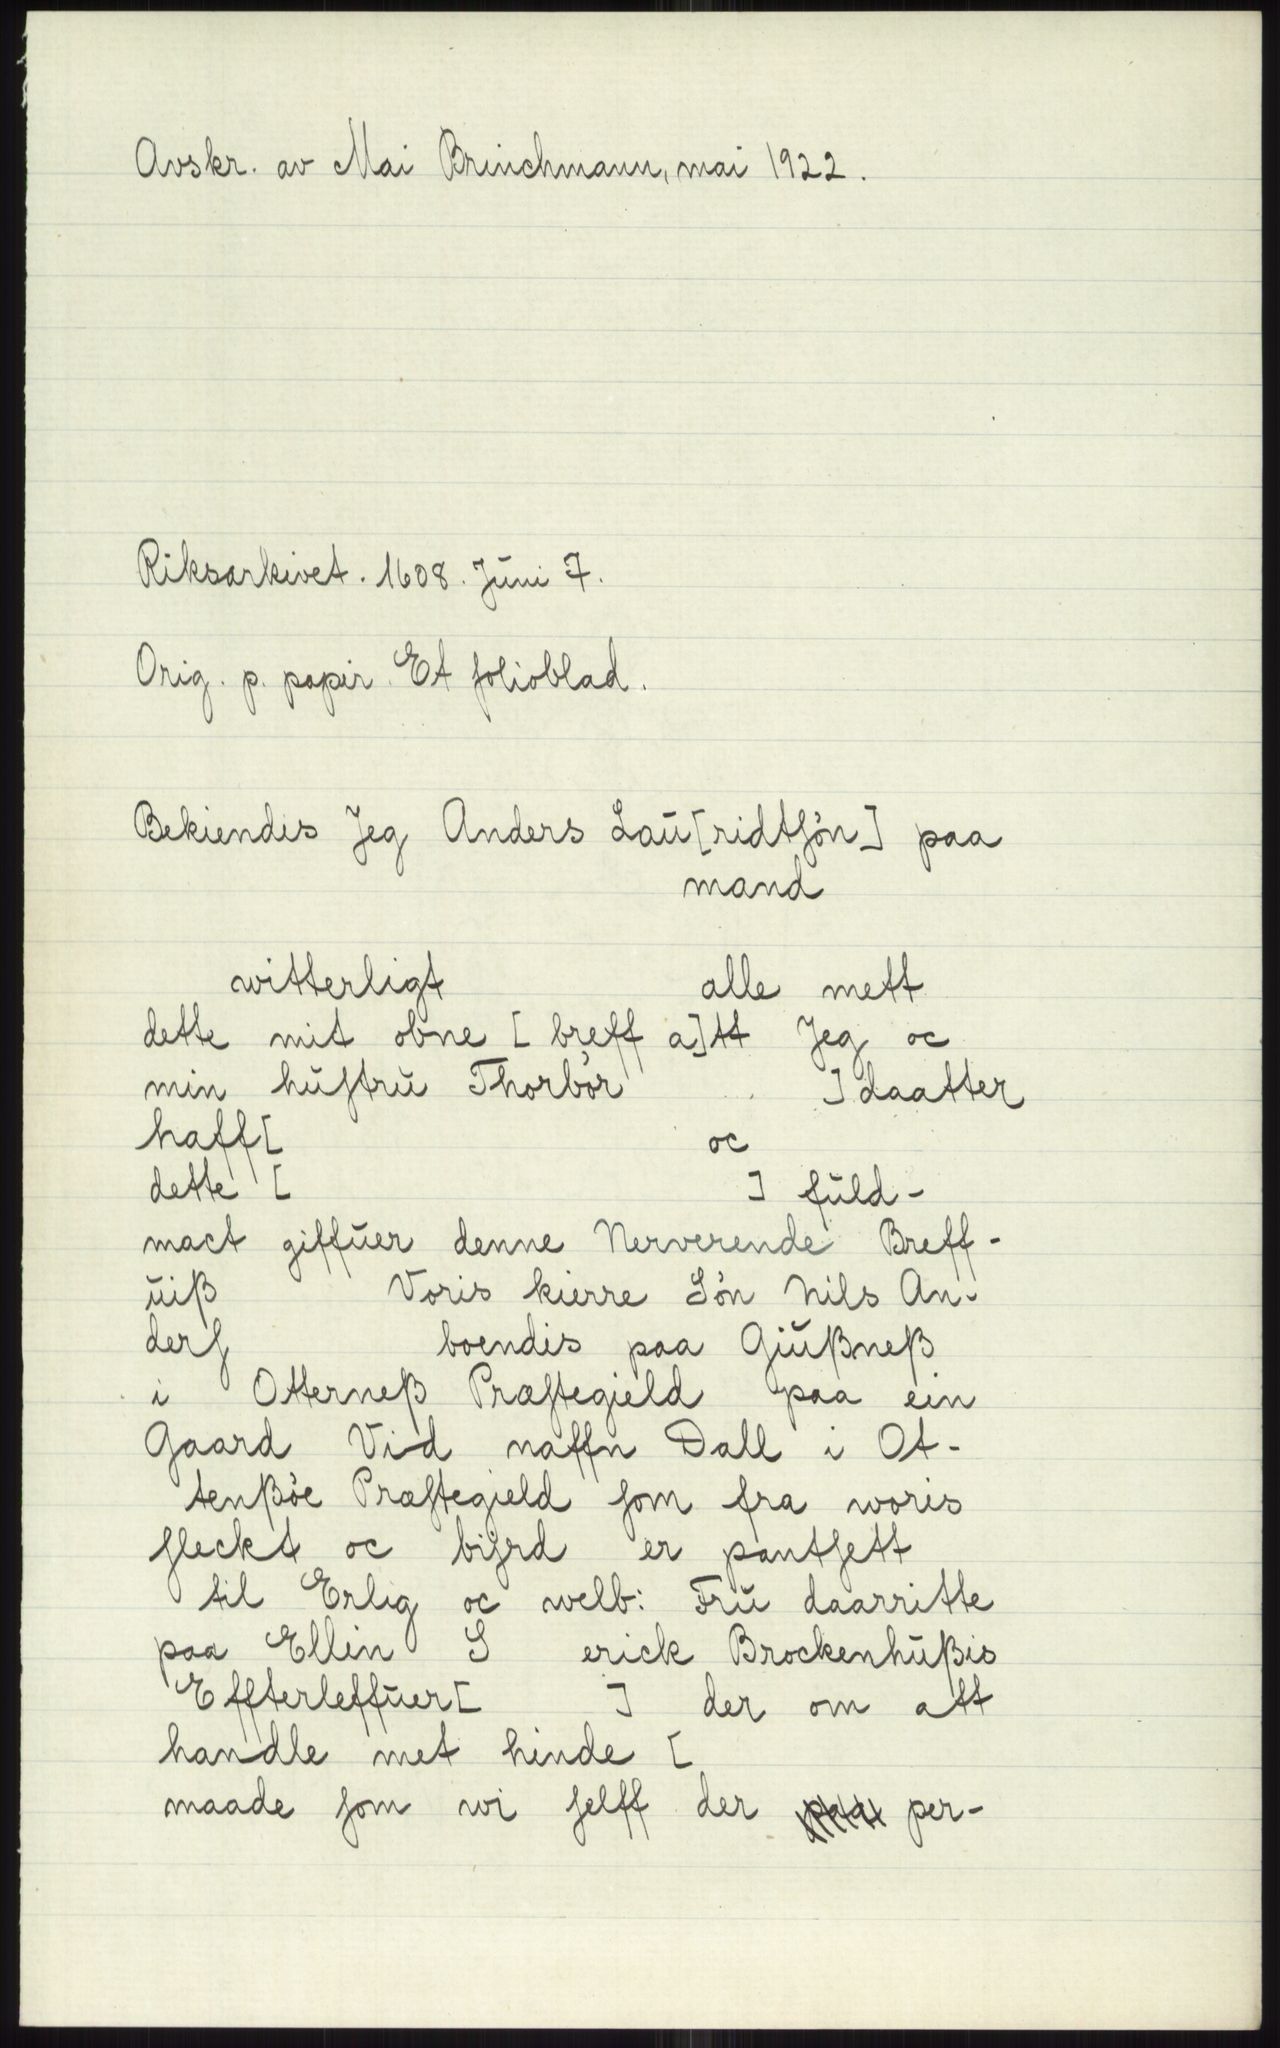 Avskr. av Mai Brinchmann, mai 1922.
Riksarkivet. 1608. Jŭni 7.
Orig. p. papir. Et folioblad.
Bekiendis Jeg Anders Laŭ[ridtſøn] paa
mand
witterligt alle mett
dette mit obne [ breff a]tt Jeg oc
min hŭſtrŭ Thorbør ] daatter
haff[ oc
dette [ ] fŭld-
mact giffŭer denne Nerverende Breff-
ŭiß Voris kierre Søn Nils An-
derſ boendis paa Giŭßneß
i Otterneß Præſtegield paa ein
Gaard Vid naffn Dall i Ot-
tenßøe Præſtegield ſom fra woris
ſleckt oc biſrd er pantſett
til Erlig oc welb: Frŭ daarritte
paa Ellin S erick Brockenhŭßis
Effterleffŭer[ ] der om att
handle met hinde [
maade ſom wi ſelff der per-